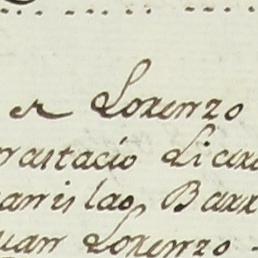 er Lorenzo
nastacio Licera
anislao Barr
uan Lorenzo